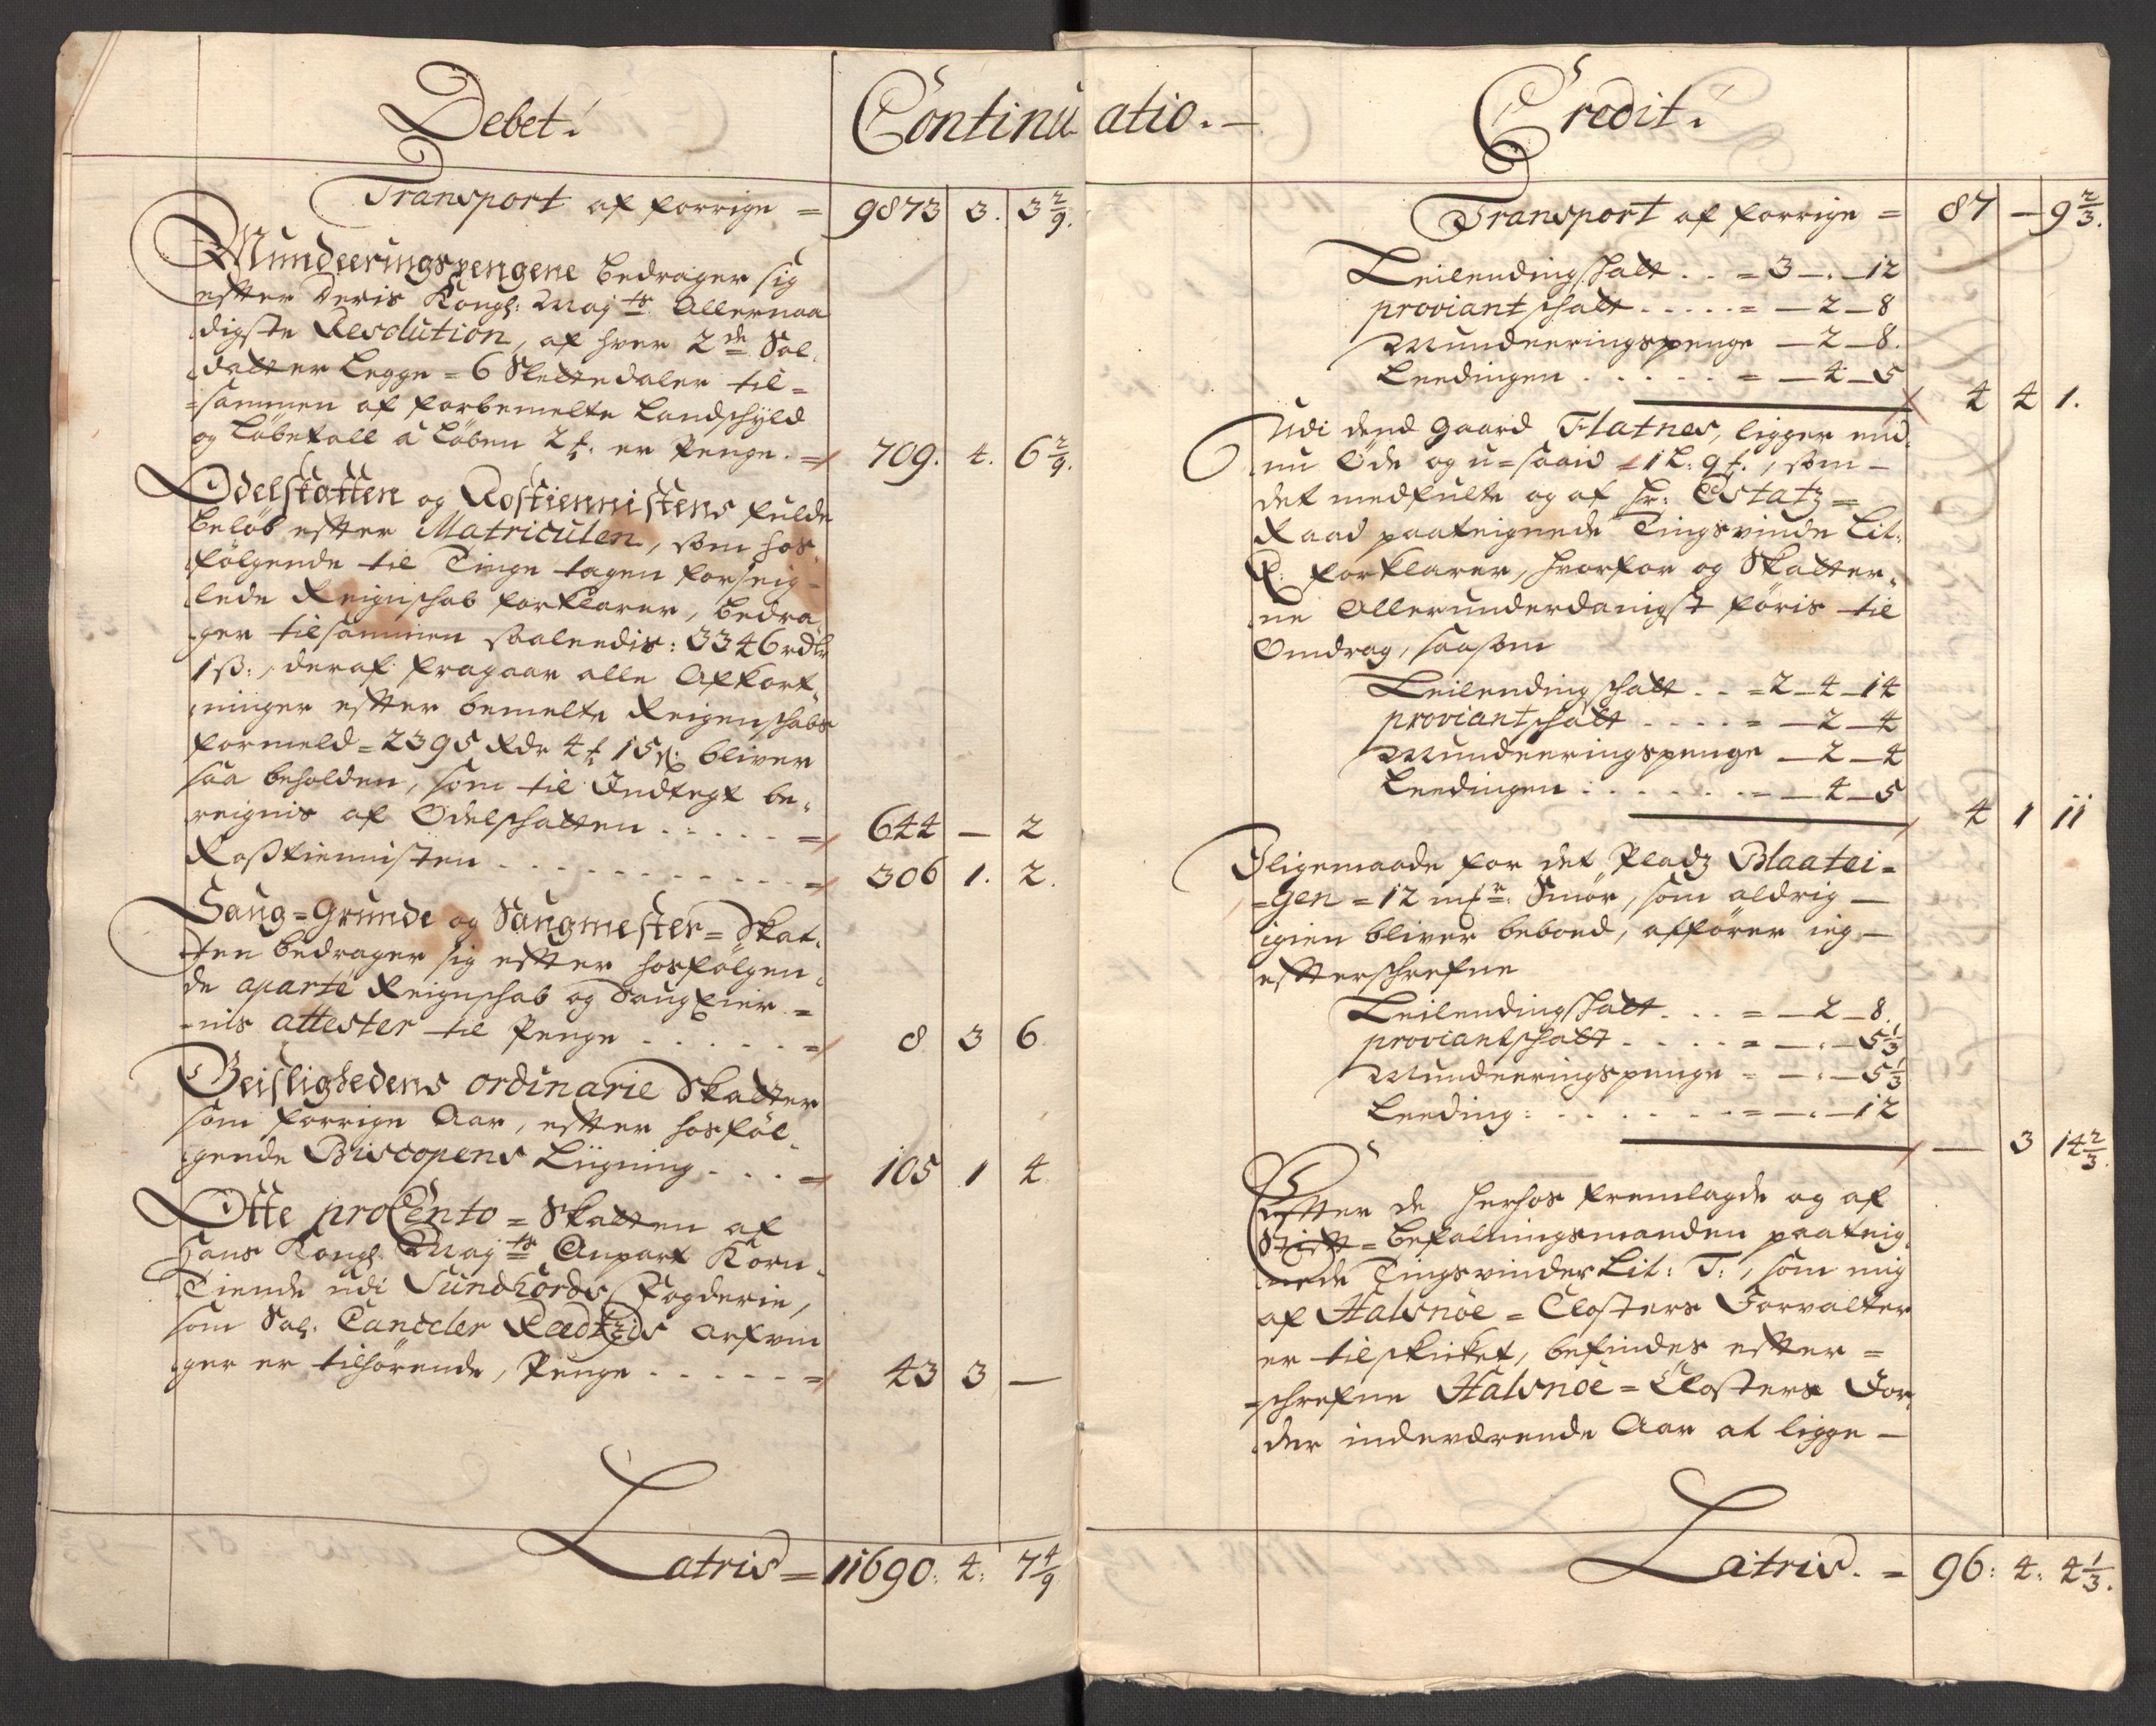 Debet. Continuatio.
Transport af forrige = 9873 3. 3 2/9.
Munderingspengene bedrager sig
efter Deris Kongl: Maj.ts Allernaa
digste Resolution, af hver 2de Sol.
datter Legge = 6 Slettedaler til=
=sammen af forbemelte Landschyld
og Løbetall à Løben 2 ƒ. er Penge. = 709. 4. 6 2/9.
Odelskatten og Rostiennistens fulde
beløb efter Matriculen, som hos
følgende til Tinge tagen forseig-
lede Reignschab forklarer, bedra
ger tilsammen saaledis: 3346 rdlr
1 ß:, deraf fragaar alle Afkort
ninger efter bemelte Reigenschabs
formeld = 2395 Rdr 4 15 ß: bliver
saa beholden, som til Indtegt be.
reignis af Odelschatten . . . . . = 644 — 2
Rosstiennisten . . . . . . . . . . = 306 1. 2.
Saug=Grunde og Saugmester=Skat.
ten bedrager sig efter hosfølgen
de aparte Reignschab og Saugeier=
nis attester til Penge . . . . . = 8 3 6.
Geistlighedens ordinarie Skatter
som forrige Aar, efter hosføl
gende Biscopens Liigning . . . = 105 1 4
Otte proCento = Skatten af
Hans Kongl: Maj.ts Anpart Korn
Tiende udi Sundhords Fogderie,
som Sal. Cancler Rædtz Arfvin
ger er tilhørende, Penge . . . . . = 43 3 —
Latris = 11690: 4: 7 4/9
Credit.
Transport af forrige = 87 — 9 2/3.
Leilendingschatt . . = 3 — . — 12
proviantschatt . . . . . = — 2 — 8
Munderingspenge — 2 — 8.
Leedingen . . . . . . = — 4 — 5
4 4 1.
Udi dend Gaard Flatnes, ligger end.
nu Øde og u=saaid = 1 L: 9 ƒ., som —
det medfulte og af Hr: Estatz=
Raad paateignede Tingsvinde Lit:
forklarer, hvorfor og Skatter.
ne Allerunderdanigst føris til
Omdrag, saasom
Leilendingschatt . . = 2 — 4 — 14
proviantschatt . . . . = — 2 — 4
Munderingspenge — 2 — 4
Leedingen : . . . . . = — 4 — 5
4 1 11
Iligemaade for det Pladz Blaatei=
=gen = 12 mƒr: Smør, som aldrig —
igien bliver beboed, afføres ieg —
efterschrefne
Leilendingschatt . . . = — 2 — 8.
proviantschatt . . . . = — . — 5 1/3
Munderingspenge = — . — 5 1/3
Leeding: . . . . . . . = — . — 12
— 3 14 2/3.
Efter de herhos fremlagde og af
Stift=befalningsmanden paateig.
nede Tingsvinder Lit: T:, som mig
af Halsnøe = Closters Forvalter
er tilskicket, befindes efter=
=schrefne Halsnøe = Closters Jor.
der indeværende Aar at ligge —
Latris. = 96: 4: 4 1/3.